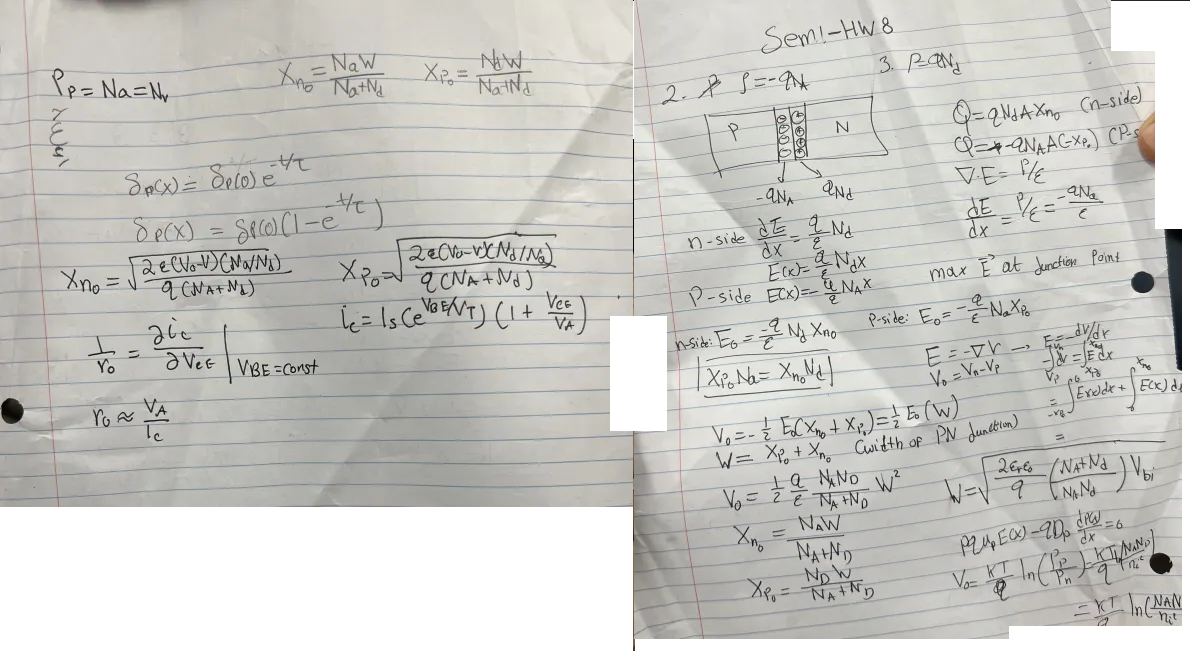 P_P = Na = N_v
X_n₀ = NaW / (Na+Nd)    X_P₀ = NdW / (Na+Nd)
δ_P(x) = δ_P(0) e^(-t/τ)
δ_P(x) = δ_P(0)(1-e^(-t/τ))
X_n₀ = √(2ε(V₀-V)(Na/Nd) / q(NA+Nd))    X_P₀ = √(2ε(V₀-V)(Nd/Na) / q(NA+Nd))
i_c = I_S(e^(V_BE/V_T))(1 + V_CE/V_A)
1/r₀ = ∂i_c/∂V_CE | V_BE = const
r₀ ≈ V_A/I_C
Semi-HW8
2. ρ = -qN_A
3. ρ = qN_d
P N
-qN_A    qN_d
Q = qN_dAX_n₀ (n-side)
Q = -qN_AA(-X_P₀) (P-s
∇·E = ρ/ε
dE/dx = ρ/ε = -qNa/ε
n-side dE/dx = q/ε N_d
E(x) = q/ε N_dx
P-side E(x) = -q/ε N_Ax
max E⃗ at Junction Point
n-side: E₀ = -q/ε N_d X_n₀
P-side: E₀ = -q/ε Na X_P₀
X_P₀ Na = X_n₀ N_d
E = -∇V → E = -dV/dx
V₀ = V_n - V_P
-∫dV = ∫E dx
= ∫E(x)dx + ∫E(x)d
=
V₀ = -½ E₀(X_n₀ + X_P₀) = ½ E₀(W)
W = X_P₀ + X_n₀ (width of PN Junction)
V₀ = ½ q/ε N_AN_D/(N_A+N_D) W²
X_n₀ = N_AW / (N_A+N_D)
X_P₀ = N_DW / (N_A+N_D)
W = √(2ε_rε₀/q ((N_A+N_d)/(N_AN_d)) V_bi)
Pqμ_pE(x) - qD_p dP(x)/dx = 0
V₀ = KT/q ln(P_P/P_n) = KT/q ln(N_AN_D/n_i²)
= KT/q ln(NAN/n_i²